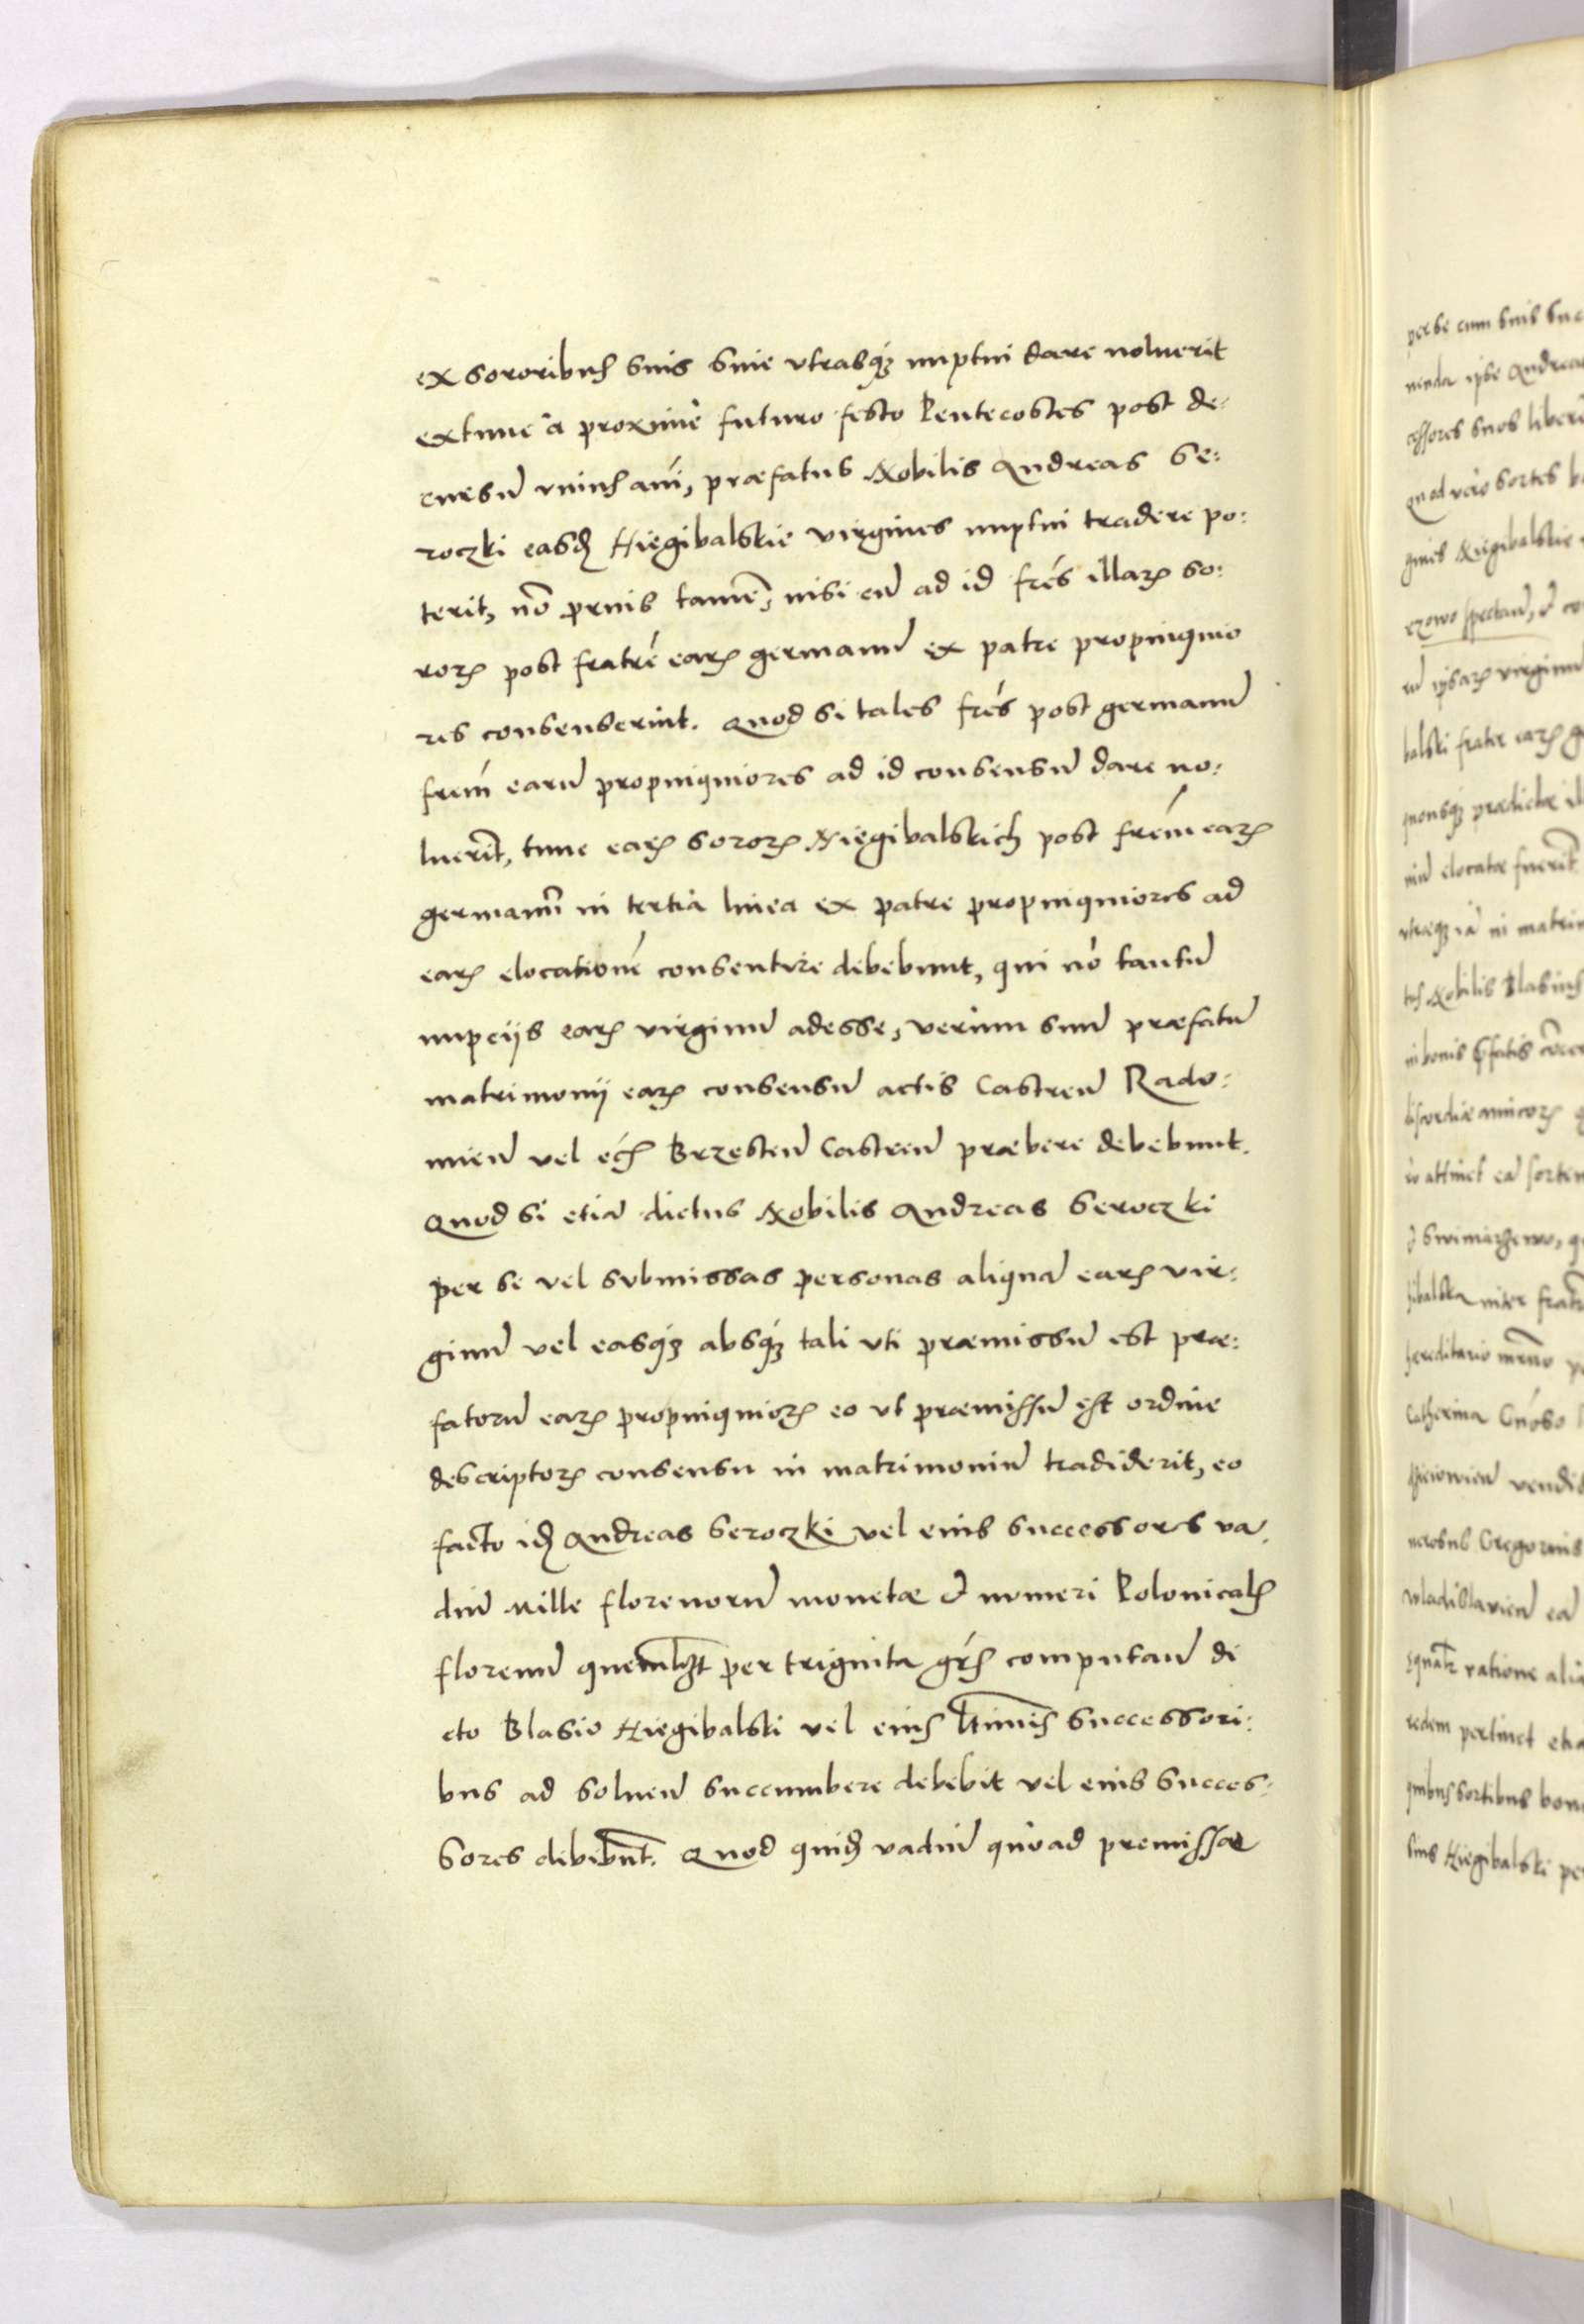 ex sororibus suis sive utrasq; nuptui dare noluerit
extunc a proxime futuro festo Pentecostes post de-
cursu unius ani, præfatus Nobilis Andreas Se-
roczki easd Niegibalskie virgines nuptui tradere po-
terit, no prius tame, nisi cu ad id fres illar so-
ror post fratre ear germanu ex patre propinquio
res consenserint. Quod si tales fres post germanu
frem earu propinquiores ad id consensu dare no-
luerit, tunc ear soror Niegibalskich post frem ear
germanu in tertia linea ex patre propinquiores ad
ear elocatione consentire debebunt, qui no tantu
nupcijs ear virginu adesse, verum suu præfatu
matrimonij ear consensu actis Castren Rado-
mien vel Brzesten Castren præbere debebunt.
Quod si etia dictus Nobilis Andreas Seroczki
per se vel submissas personas aliqua ear vir-
ginu vel easq; absq; tali uti præmissu est præ-
fatoru ear propinquior eo ut præmissu est ordine
descriptor consensu in matrimoniu tradiderit, eo
facto id Andreas Seroczki vel eius successores va-
diu Mille florenoru monetæ et numeri Polonical
florenu quemlbt per triginta grs computan di
cto Blasio Niegibalski vel eius ltimis successori-
bus ad soluen succumbere debebit vel eius succes-
sores debebunt. Quod quid vadiu quoad premissa
perse cum suis suc
nenda ipse Andrea
cessores suos liber
quod vero sortes
ginis Niegibalskie
spectan, et co
ru ipsar virginu
balski frater ear
quousq; prædictæ
niu elocatæ fuerit
utræq; ia in matri
tus Nobilis Blasius
in bonis
discordiæ amicor
ro attinet ea sorte
inter frat
hereditario
Catherina
vendid
nerosus Gregorius
Wladislavien ea
ratione
redem pertinet etia
quibus sortibus bon
sius Niegibalski per